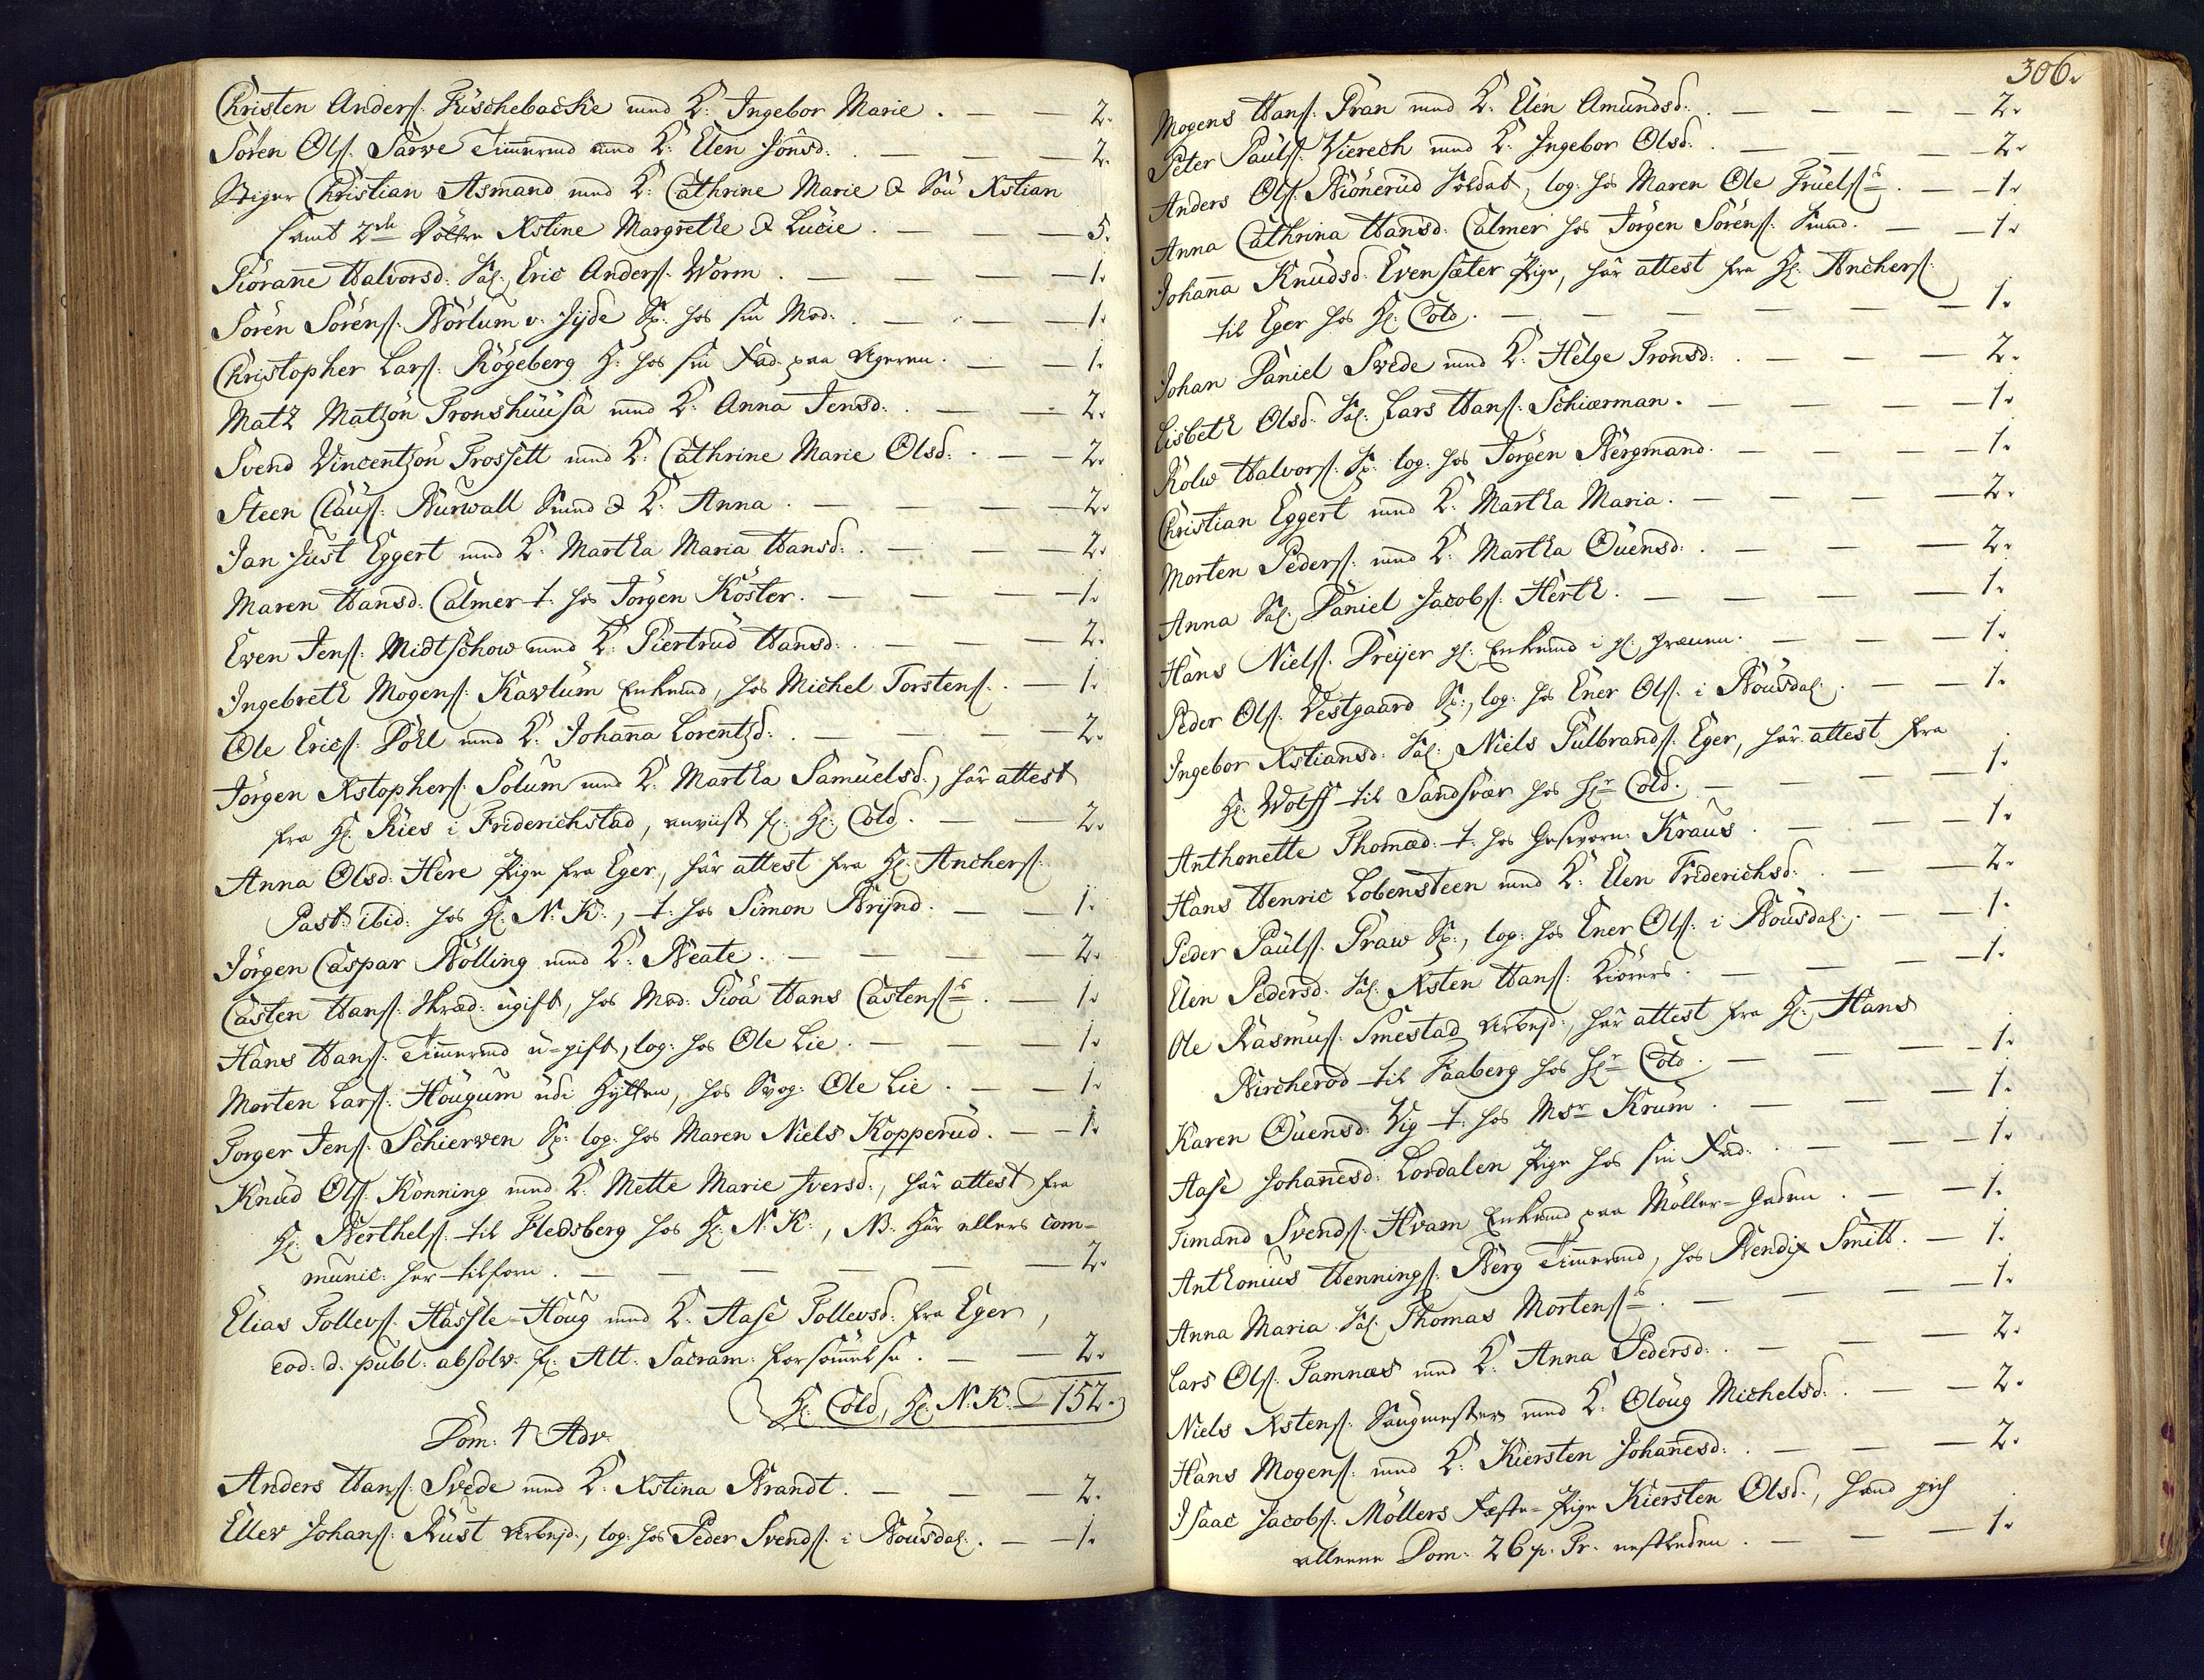 Christen Anders: Fischebache med K: Ingebor Marie . — — 2.
Sören Ols: Sarve Timmermd med K: Elen Jonsd: . — — — 2.
Stiger Christian Asmand med K: Cathrine Marie & Sön Xstian
samt 2de Döttre Xstine Margrethe & Lucie . — — — 5.
Giöranne Halvorsd: Sal: Eric Anders: Worm . — — — 1.
Sören Sörens: Börlum v: Jyde Sp: hos sin Mod: . — — — 1.
Christopher Lars: Rögeberg H: hos sin Fad: paa Ageren . — — 1.
Matz Matzön Tronshuusa med K: Anna Jensd: . — — 2.
Svend Vincentzön Frossett med K: Cathrine Marie Olsd: . — — 2.
Steen Claus: Burwall Smed & K: Anna . — — — 2.
Jan Just Eggert med K: Martha Maria Hansd: . — — — 2.
Maren Hansd: Calmer t: hos Jörgen Köster . — — — 1.
Even Jens: Midtschow med K: Giertrud Hansd: . — — 2.
Ingebreth Mogens: Kavlum Enkemd, hos Michel Torstens: . — 1.
Ole Erics: Döhl med K: Johanna Lorentzd: . — — — 2.
Jörgen Xstophers: Solum med K: Martha Samuelsd:, har attest
fra H: Ries i Friderichstad, anviist H: Cold . — — 2.
Anna Olsd: Hére Pige fra Eger, har attest fra H: Anchers:
Past: ibid: hos H: N: K:, t: hos Simon Brynd . — — 1.
Jörgen Caspar Bölling med K: Beate . — — — 2.
Casten Hans: Skræd: ugift, hos Mod: Gioa Hans Castens: . — 1.
Hans Hans: Timmermd u-gift, log: hos Ole Lie . — — 1.
Morten Lars: Hougum udi Hytten, hos Svog: Ole Lie . — — 1.
Torger Jens: Schierven Sp: log: hos Maren Niels Kopperud . — 1.
Knud Ols: Konning med K: Mette Marie Iversd:, har attest fra
H: Berthels: til Flesberg hos H: N: K:, NB: har ellers com-
munic: her tilforn . — — — — — 2.
Elias Tollevs: Hassle-Houg med K: Aase Tollevsd: fra Eger,
eod: d: publ: absolv: f: Alt: Sacram: forsömmelse . — — 2.
H: Cold, H: N: K: — 152.
Dom: 4 Adv:
Anders Hans: Svede med K: Xstina Brandt . — — — 2.
Ellev Johans: Rust Arbejd:, log: hos Peder Svends: i Nousdal: . — 1.
306.
Mogens Hans: Pran med K: Elen Amundsd: . — — — 2.
Peter Pauls: Vierech med K: Ingebor Olsd: . — — — 2.
Anders Ols: Biönerud Soldat, log: hos Maren Ole Fruels: . — 1.
Anna Cathrina Hansd: Calmer hos Jörgen Sörens: Smed . — — 1.
Johanna Knudsd: Evensæter Pige, har attest fra H: Anchers:
til Eger hos H: Cold . — — — — 1.
Johan Daniel Svede med K: Helge Tronsd: . — — — 2.
Lisbeth Olsd: Sal: Lars Hans: Schiærman . — — — 1.
Rolw Halvors: Sp: log: hos Jörgen Bergmand . — — 1.
Christian Eggert med K: Martha Maria . — — — 2.
Morten Peders: med K: Martha Ouensd: . — — — 2.
Anna Sal: Daniel Jacobs: Herth . — — — 1.
Hans Niels: Dreijer gl: Enkemd i gl: Grænen . — — — 1.
Peder Ols: Vestgaard Sp:, log: hos Ener Ols: i Nousdal: . — — 1.
Ingebor Xstiansd: Sal: Niels Gulbrands: Eger, har attest fra
H: Wolff til Sandsvær hos Hr Cold . — — — 1.
Anthonette Thomæd: t: hos Gesvorn: Kraus . — — — 1.
Hans Henric Lobensteen med K: Elen Friderichsd: . — — 2.
Peder Pauls: Praw Sp:, log: hos Ener Ols: i Nousdal: . — — 1.
Elen Pedersd: Sal: Xsten Hans: Kiörers . — — — 1.
Ole Rasmus: Smestad Arbejd:, har attest fra H: Hans
Bircherod til Faaberg hos Hr Cold . — — — 1.
Karen Ouensd: Vig t: hos Msr Krum . — — — 1.
Aase Johannesd: Lordalen Pige hos sin Fad: . — — 1.
Timand Svends: Hvam Enkemd paa Möller-Gaden . — — 1.
Anthonius Hennings: Berg Timmermd, hos Bendix Smitt . — 1.
Anna Maria Sal: Thomas Mortens: . — — — 1.
Lars Ols: Tamnæs med K: Anna Pedersd: . — — — 2.
Niels Xstens: Saugmester med K: Oloug Michelsd: . — — 2.
Hans Mogens: med K: Kiersten Johannesd: . — — — 2.
Isaac Jacobs: Möllers Fæste-Pige Kiersten Olsd:, hand gich
alleene Dom: 26 p: Tr: nestleden . — — — 1.